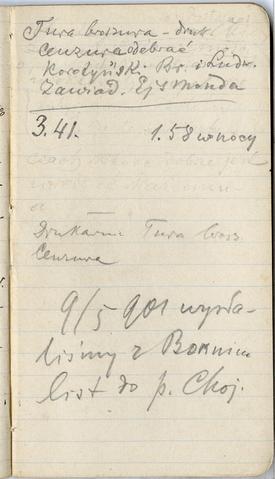 Tura broszura – druk
Cenzura odebrać
Korotyński Br. i Ludw.
Zawiad. Ejsmonda
3.41. 1.58 w nocy
Drukarni Tura brosz
Cenzura
9/5 901 wysła-
liśmy z
list do p. Choj.